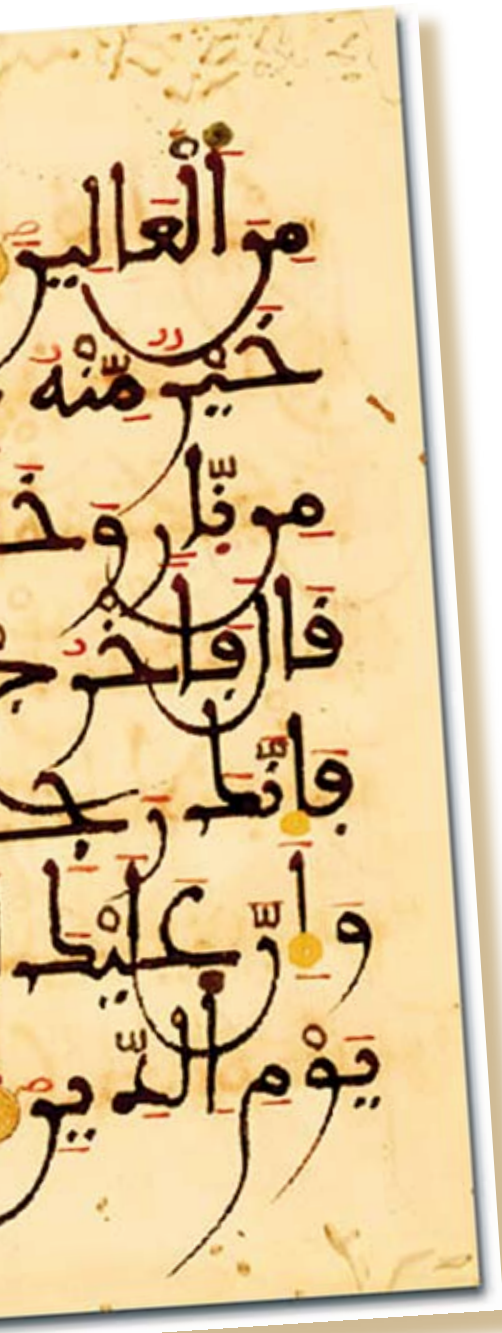 مِنَ ٱلْعَالِينَ
خَيْرٌ مِّنْهُ
مِن نَّارٍ وَخَ
قَالَ فَاخْرُجْ
فَإِنَّكَ رَجِ
وَإِنَّ عَلَيْكَ
يَوْمِ ٱلدِّينِ